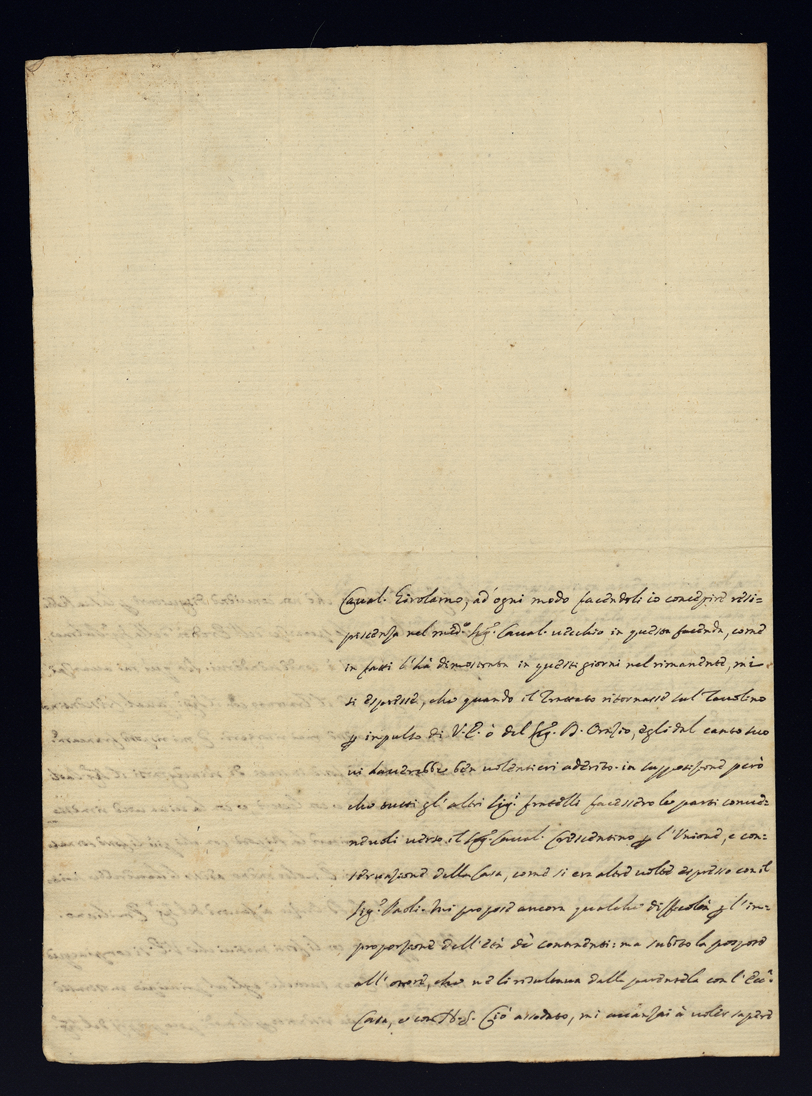 Caval. Girolamo, ad ogni modo facendoli io concepire resi=
piscenza nel med.º Sig.r Caval. vecchio in questa facenda, come
in fatti l'hà dimostrata in questi giorni nel rimanente, mi
si espresse, che quando il Trattato ritornasse sul Tavolino
p impulso di V.E. ò del Sig.r B. Orazio, egli dal canto suo
vi haverebbe ben volentieri aderito. in supposizione però
che tutti gl'altri Sig.ri fratelli facessero le parti conve=
nevoli verso il Sig.r Caval. Crescentino p l'Unione, e con=
servazione della Casa, come si era altre volte espresso con il
Sig.r Paoli. Mi propose ancora qualche difficoltà p l'im=
proporzione dell'età de contraenti: ma subito la pospose
all'onore, che ne li risultava dalla parentela con l'Ecc.ma
Casa, e con Ciò assodato, mi avanzai à voler sapere